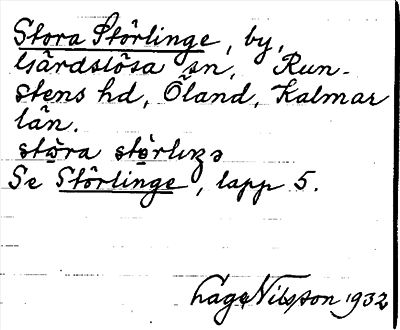 Stora Störlinge, by,
Gärdslösa sn, Run-
stens hd, Öland, Kalmar
län.
Se Störlinge, lapp 5.
Lage Nilsson 1932